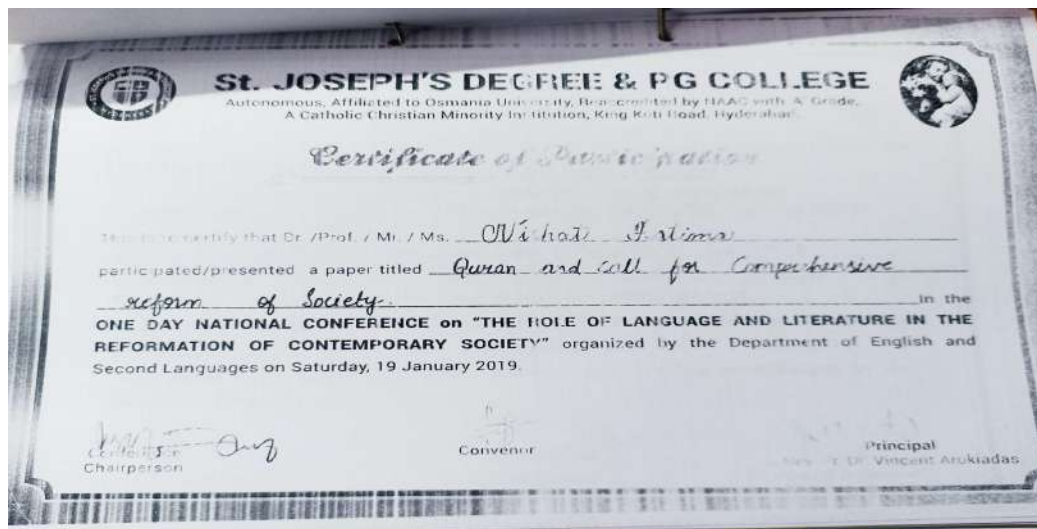 St. JOSEPH'S DEGREE & PG COLLEGE
Autonomous, Affiliated to Osmania University, Re-accredited by NAAC with 'A' Grade,
A Catholic Christian Minority Institution, King Koti Road, Hyderabad.
Certificate of Participation
This is to certify that Dr. /Prof. / Mr. / Ms. Nishat Fatima
participated/presented a paper titled Quran and call for Comprehensive
reform of Society. in the
ONE DAY NATIONAL CONFERENCE on "THE ROLE OF LANGUAGE AND LITERATURE IN THE
REFORMATION OF CONTEMPORARY SOCIETY" organized by the Department of English and
Second Languages on Saturday, 19 January 2019.
Chairperson
Convenor
Principal
Dr. Vincent Arokiadas